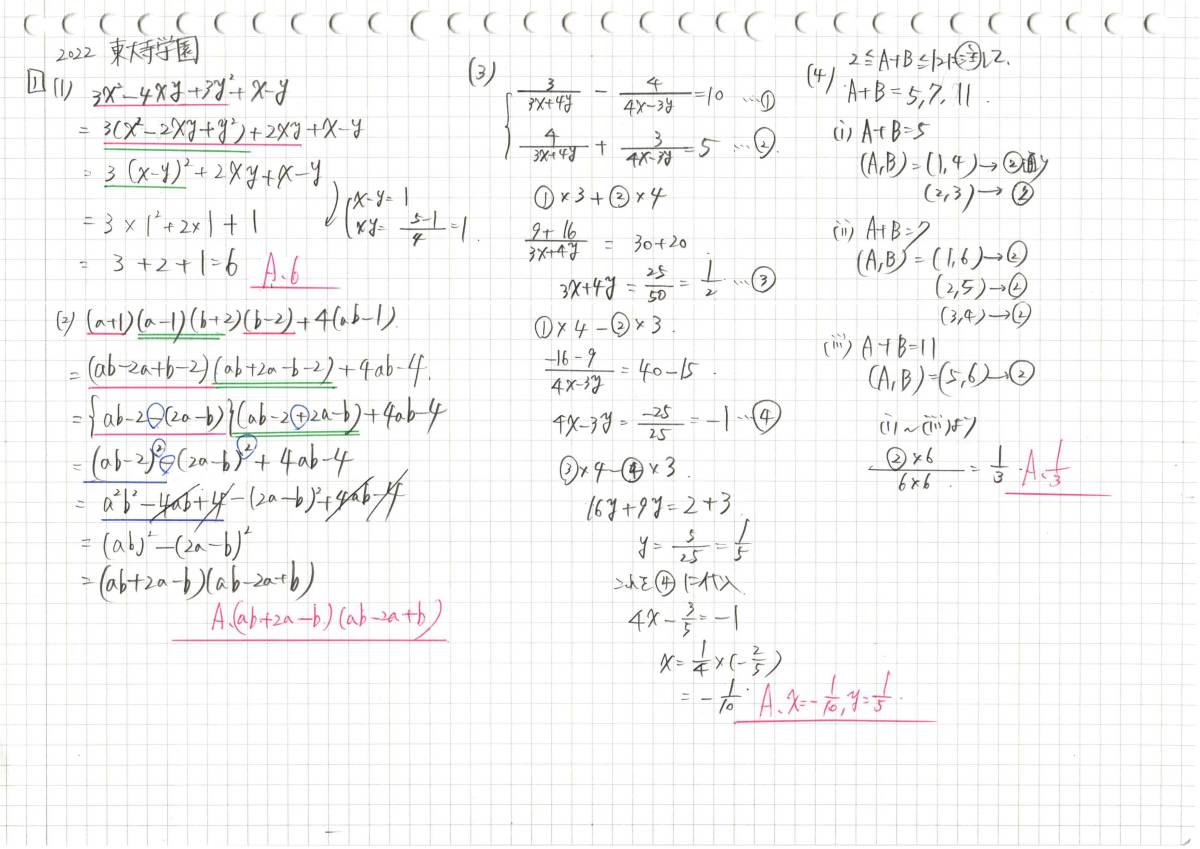 2022 東大寺学園
1 (1) 3x²-4xy+3y²+x-y
= 3(x²-2xy+y²)+2xy+x-y
= 3(x-y)²+2xy+x-y
x-y=1
xy= (5-1)/4 =1.
= 3×1²+2×1+1
= 3+2+1=6 A.6
(2) (a+1)(a-1)(b+2)(b-2)+4(ab-1)
= (ab-2a+b-2)(ab+2a-b-2)+4ab-4.
= {ab-2-(2a-b)}(ab-2+2a-b)+4ab-4
= (ab-2)²-(2a-b)²+4ab-4
= a²b²-4ab+4-(2a-b)²+4ab-4
= (ab)²-(2a-b)²
= (ab+2a-b)(ab-2a+b)
A.(ab+2a-b)(ab-2a+b)
(3)
3/(3x+4y) - 4/(4x-3y) =10 …①
4/(3x+4y) + 3/(4x-3y) =5 …②
①×3+②×4
(9+16)/(3x+4y) = 30+20.
3x+4y = 25/50 = 1/2 …③
①×4-②×3.
(-16-9)/(4x-3y) = 40-15.
4x-3y = -25/25 = -1 …④
③×4-④×3.
16y+9y=2+3.
y = 5/25 = 1/5
これを④に代入
4x - 3/5 = -1
x = 1/4 ×(-2/5)
= -1/10. A. x=-1/10, y=1/5.
(4) 2≦A+B≦12に注意して.
A+B=5,7,11.
(i) A+B=5
(A,B)=(1,4)→②通り
(2,3)→②
(ii) A+B=7
(A,B)=(1,6)→②
(2,5)→②
(3,4)→②
(iii) A+B=11
(A,B)=(5,6)→②
(i)~(iii)より
②×6/6×6 = 1/3. A.1/3